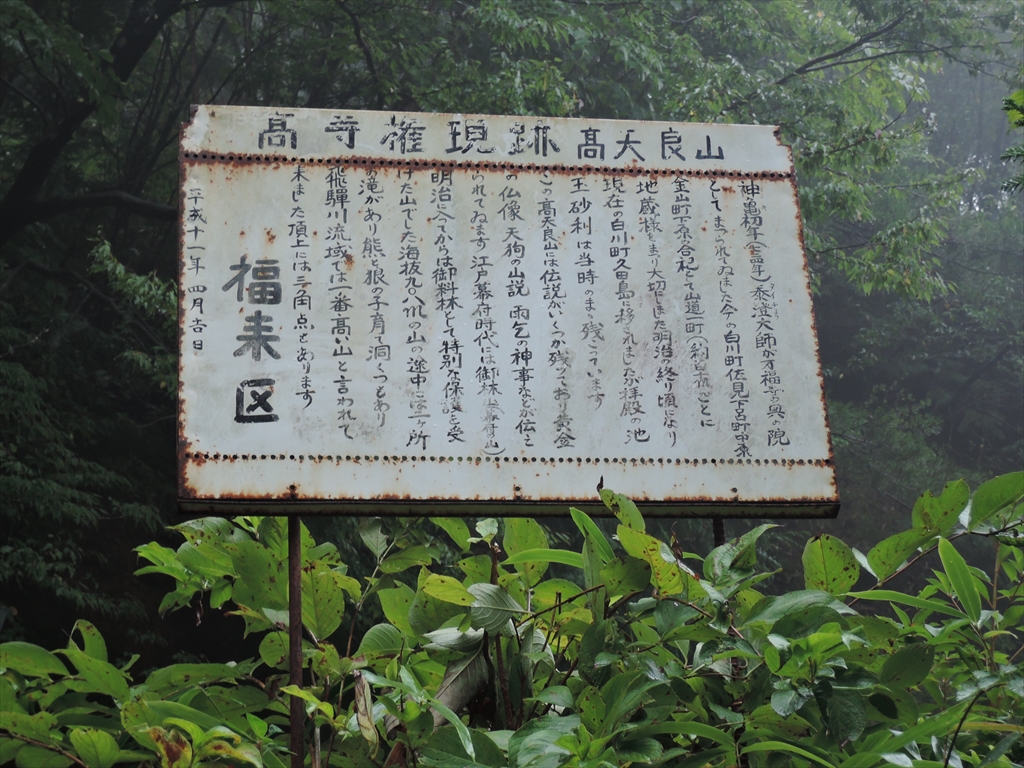 高寺権現跡 高天良山
神亀初年(七二四年)泰澄大師が万福寺の奥の院
としてまつられてゐました今の白川町佐見下呂町中原
金山町下原が合祀して山道一町(約百米)ごとに
地蔵様をまつり大切にした明治の終り頃になり
現在の白川町久田島に移されましたが拝殿の池
玉砂利は当時のまゝ残っています
この高天良山には伝説がいくつか残っており黄金
の仏像 天狗の山説 雨乞の神事などが伝え
られてゐます江戸幕府時代には御林山(幕府山)
明治に入てからは御料林として特別な保護を受
けた山でした海抜九〇八mの山の途中に三ヶ所
の滝があり熊と狼の子育て洞くつもあり
飛騨川流域では一番高い山と言われて
来ました頂上には三角点もあります
福来区
平成十一年四月吉日